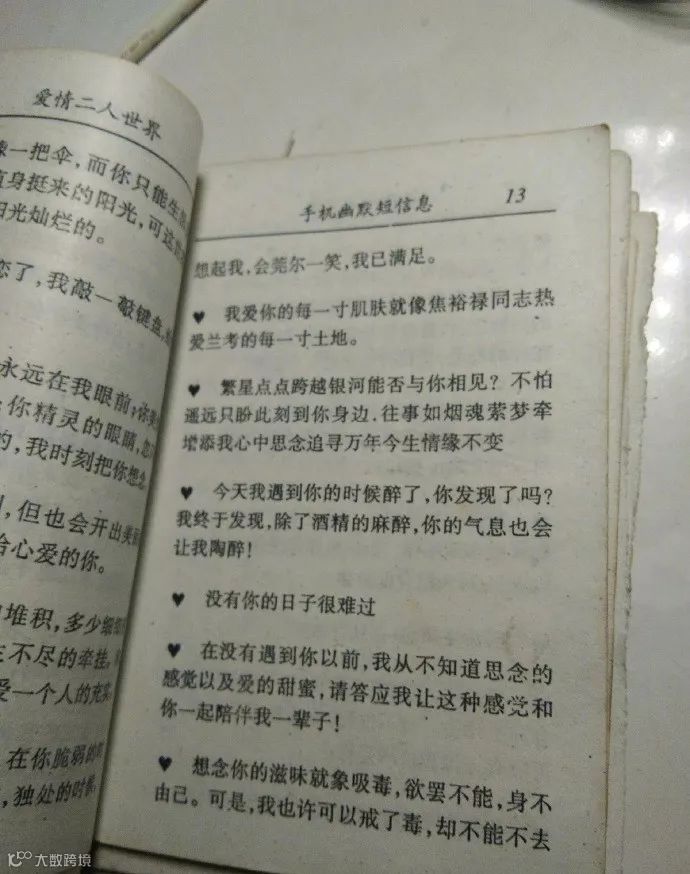 爱情二人世界
一把伞，而你只能生
身挺来的阳光，可这
阳光灿烂的。
恋了，我敲一敲键盘，
永远在我眼前；你
你精灵的眼睛，
的，我时刻把你想念
，但也会开出美丽
给心爱的你。
堆积，多少
不尽的牵挂，
爱一个人的充实
在你脆弱的时
，独处的时候，
手机幽默短信息 13
想起我，会莞尔一笑，我已满足。
♥ 我爱你的每一寸肌肤就像焦裕禄同志热
爱兰考的每一寸土地。
♥ 繁星点点跨越银河能否与你相见？不怕
遥远只盼此刻到你身边.往事如烟魂萦梦牵
增添我心中思念追寻万年今生情缘不变
♥ 今天我遇到你的时候醉了，你发现了吗？
我终于发现，除了酒精的麻醉，你的气息也会
让我陶醉！
♥ 没有你的日子很难过
♥ 在没有遇到你以前，我从不知道思念的
感觉以及爱的甜蜜，请答应我让这种感觉和
你一起陪伴我一辈子！
♥ 想念你的滋味就象吸毒，欲罢不能，身不
由己。可是，我也许可以戒了毒，却不能不去
大数跨境